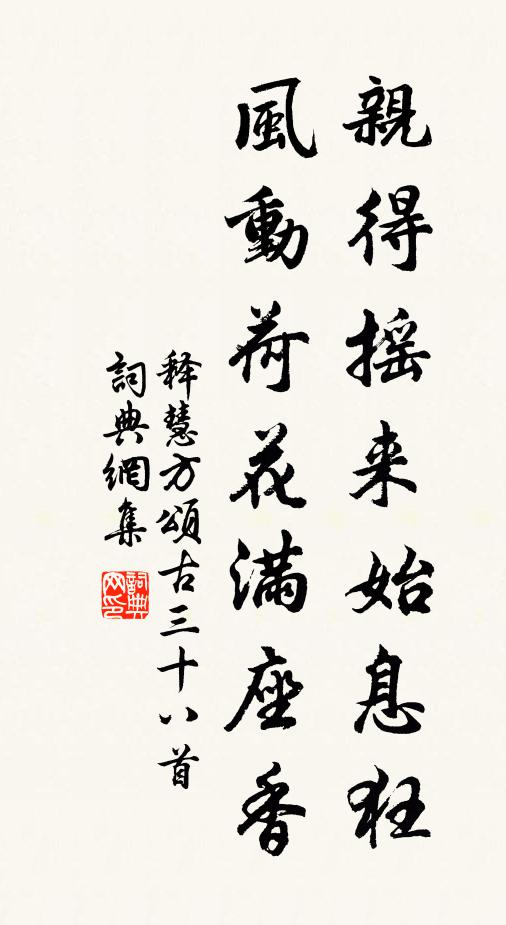 親得摇来始息狂
風動荷花滿座香
释慧方頌古三十八首
詞典網集
詞典网印